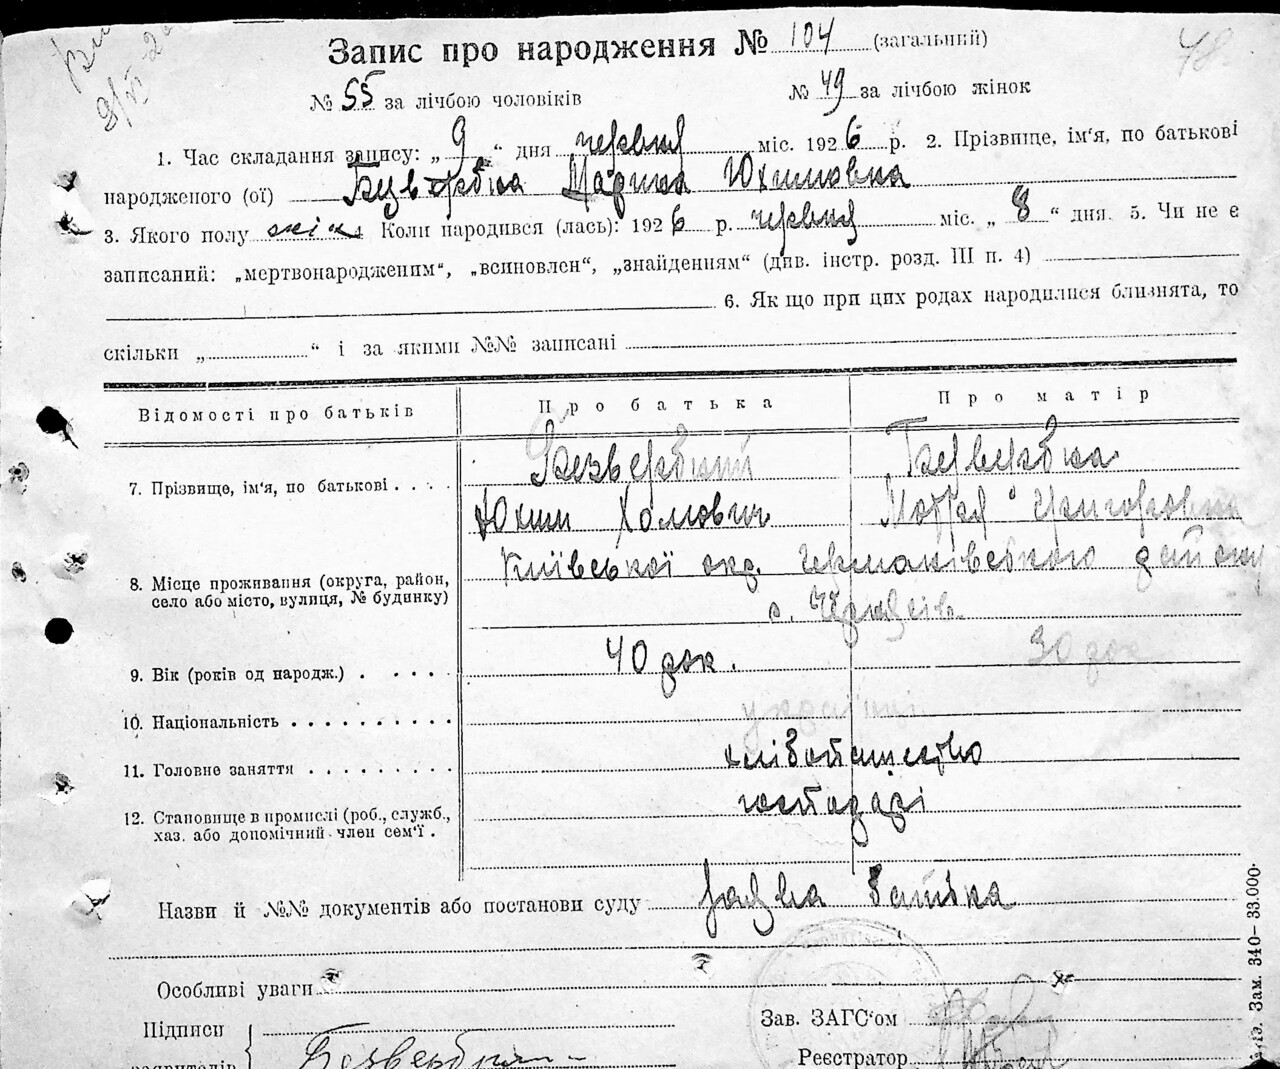 Запис про народження № 104 (загальний)
48
№ 55 за лічбою чоловіків № 49 за лічбою жінок
1. Час складання запису: „ 9 “ дня червня міс. 1926 р. 2. Прізвище, ім'я, по батькові
народженого (ої) Безвербна Марина Юхимовна
3. Якого полу жін. Коли народився (лась): 1926 р. червня міс. „ 8 “ дня. 5. Чи не є
записаний: „мертвонародженим“, „всиновлен“, „знайденням“ (див. інстр. розд. III п. 4)
6. Як що при цих родах народилися близнята, то
скільки „ “ і за якими №№ записані
Відомості про батьків Про батька Про матір
7. Прізвище, ім'я, по батькові . . . Безвербний Безвербна
Юхим Хомович Мотря Григоровна
8. Місце проживання (округа, район, Київської окр. Германівского району
село або місто, вулиця, № будинку) с.
9. Вік (років од народж.) . . . . . 40 рок. 30 рок
10. Національність . . . . . . . . . . українці
11. Головне заняття . . . . . . . . . хлібопашество
12. Становище в промислі (роб., служб., господарі
хаз. або допомічний член сем'ї .
Назви й №№ документів або постанови суду заява батька
Особливі уваги
Підписи Зав. ЗАГС'ом
заявителів Безвербний Реєстратор
Зам. 340–33.000.